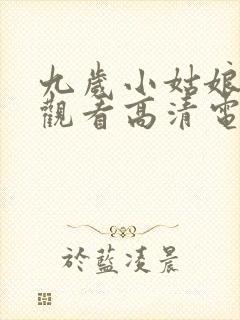 九歲小姑娘
觀看高清電
於藍凌晨